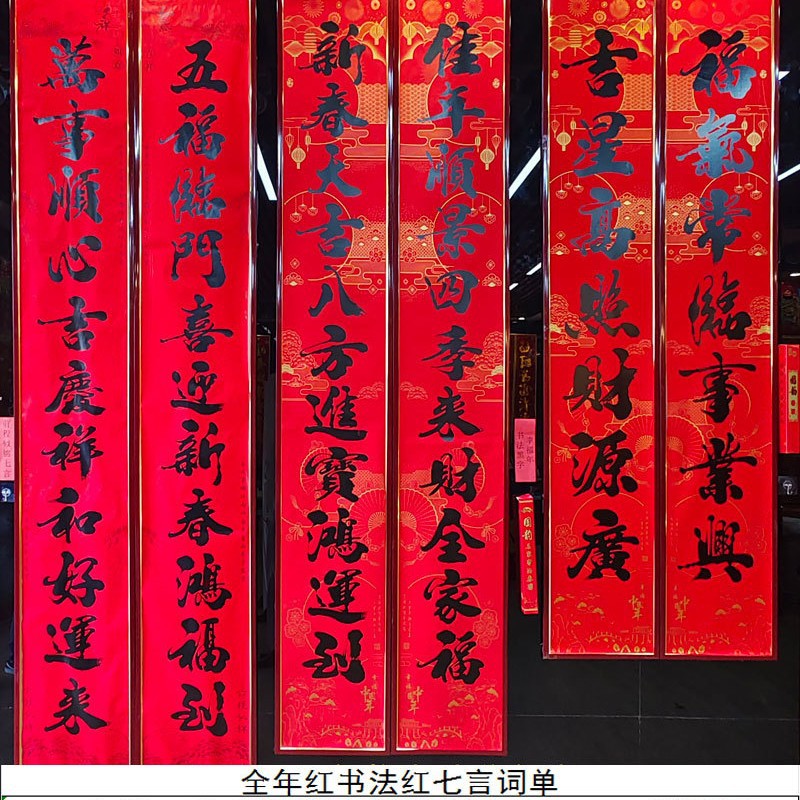 福氣常臨事業興
吉星高照財源廣
佳年順景四季来財全家福
新春大吉八方進寶鴻運到
五福臨門喜迎新春鴻福到
萬事順心吉慶祥和好運来
幸福年
书法黑字
全年红书法红七言词单